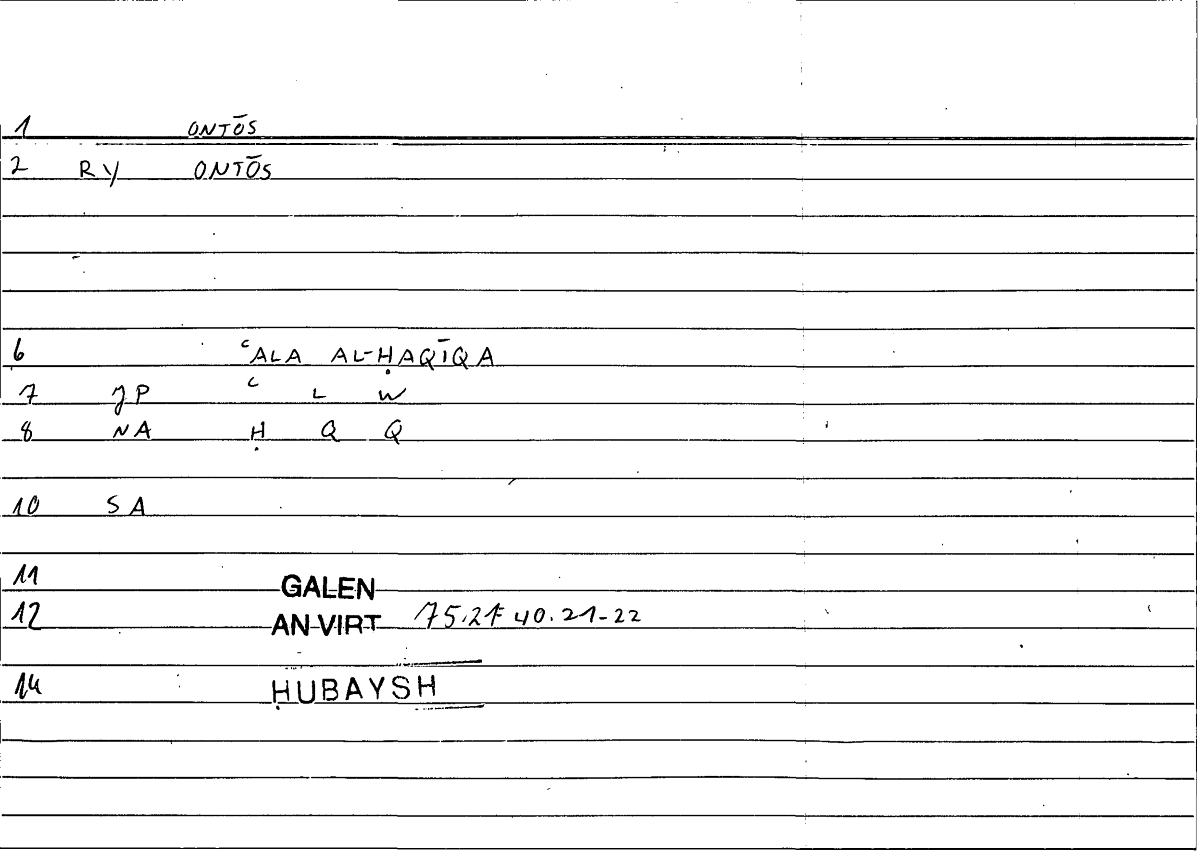 1 ONTŌS
2 RY ONTŌS
6 ʿALA AL-ḤAQĪQA
7 JP ʿ L W
8 NA Ḥ Q Q
10 SA
11 GALEN
12 AN VIRT 75.21 = 40.21-22
14 ḤUBAYSH